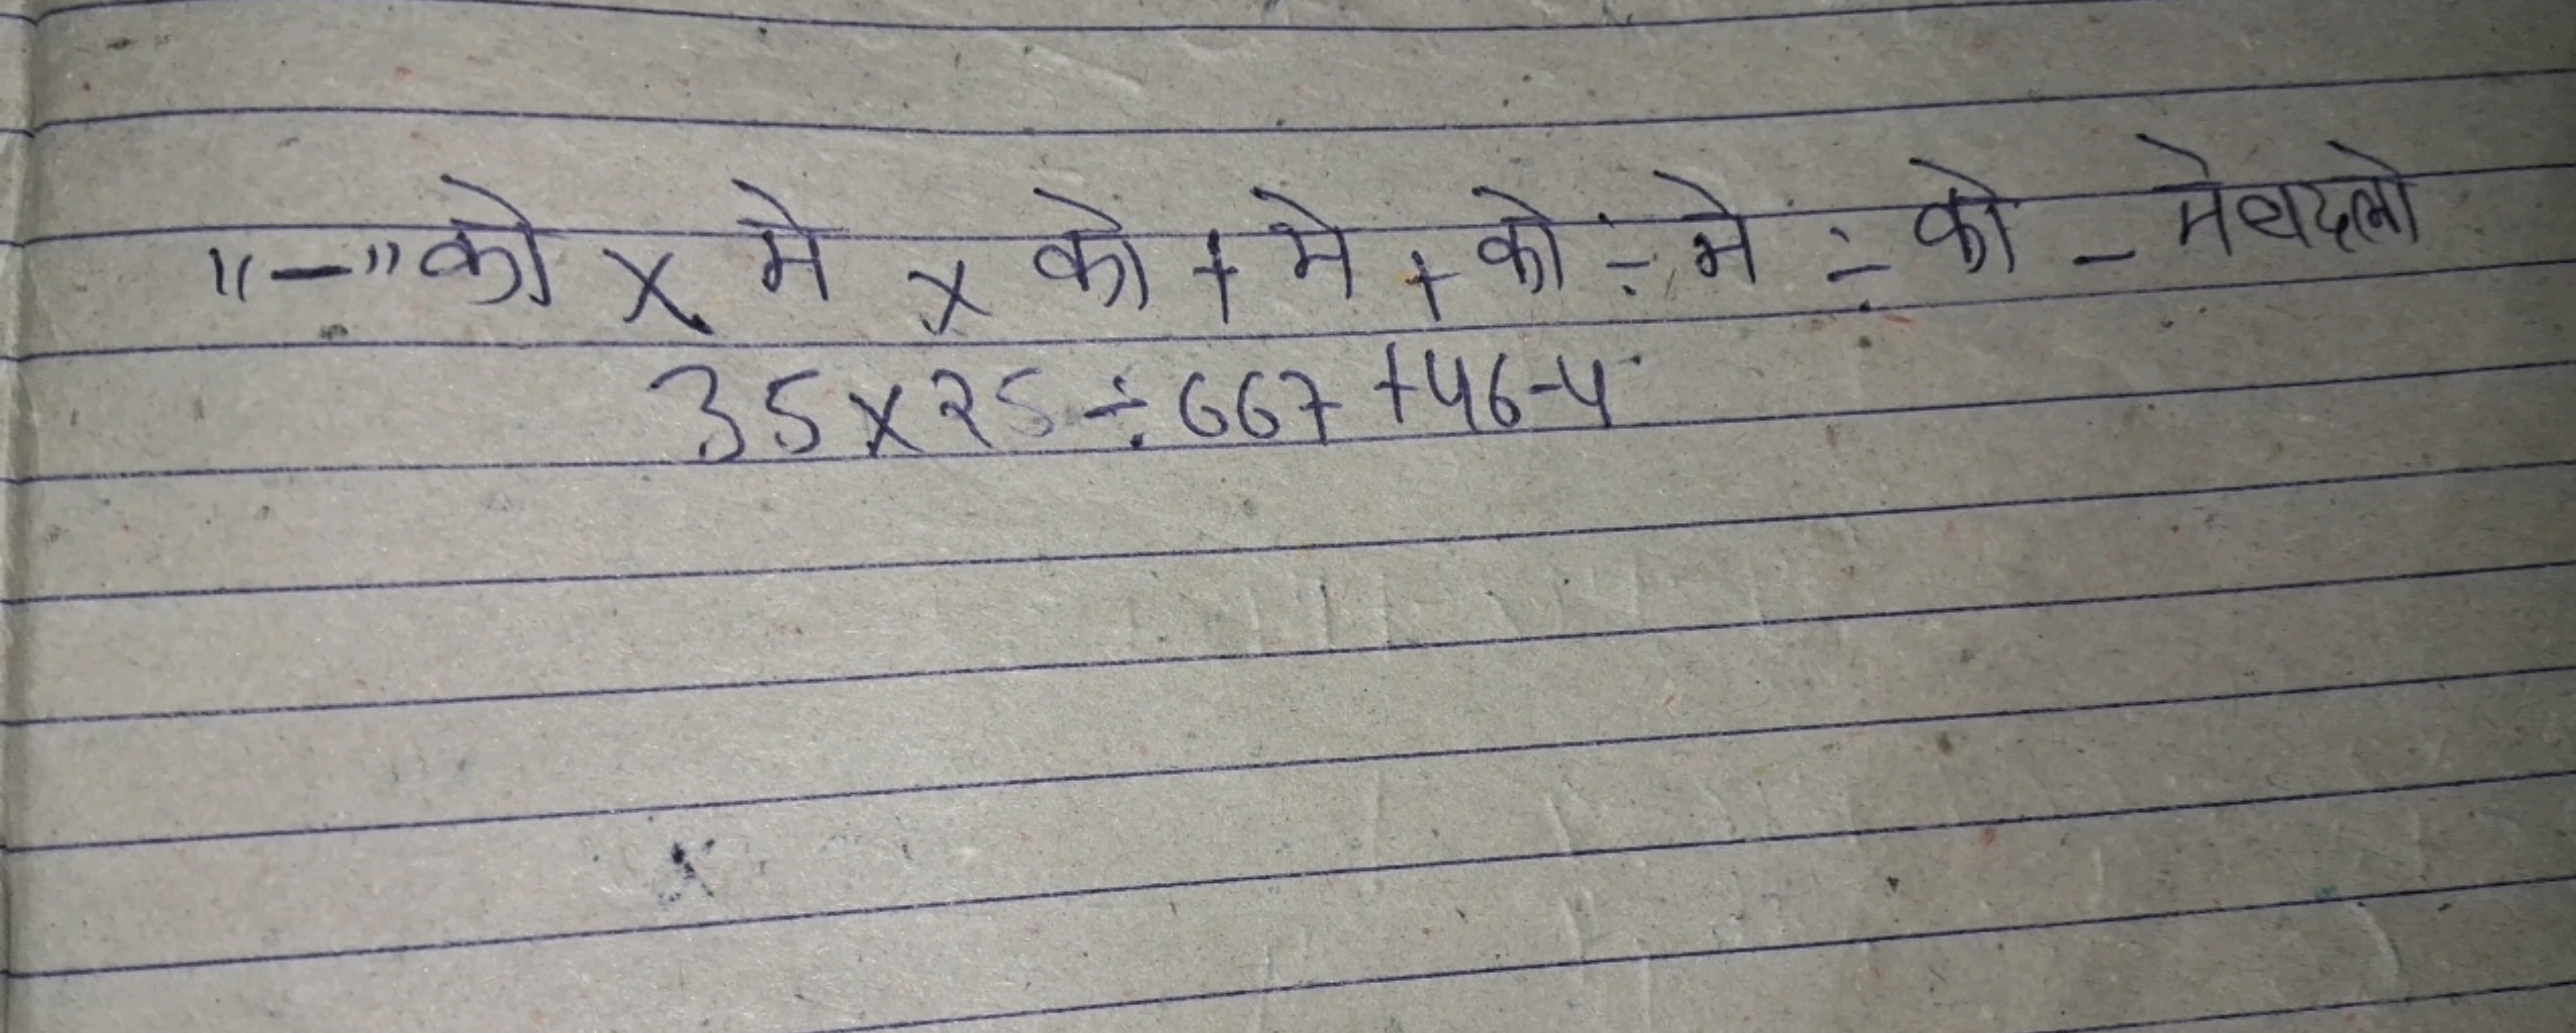 "-" को × मे × को + मे + को ÷ मे ÷ को - मे बदलो
35×25÷667+46-4